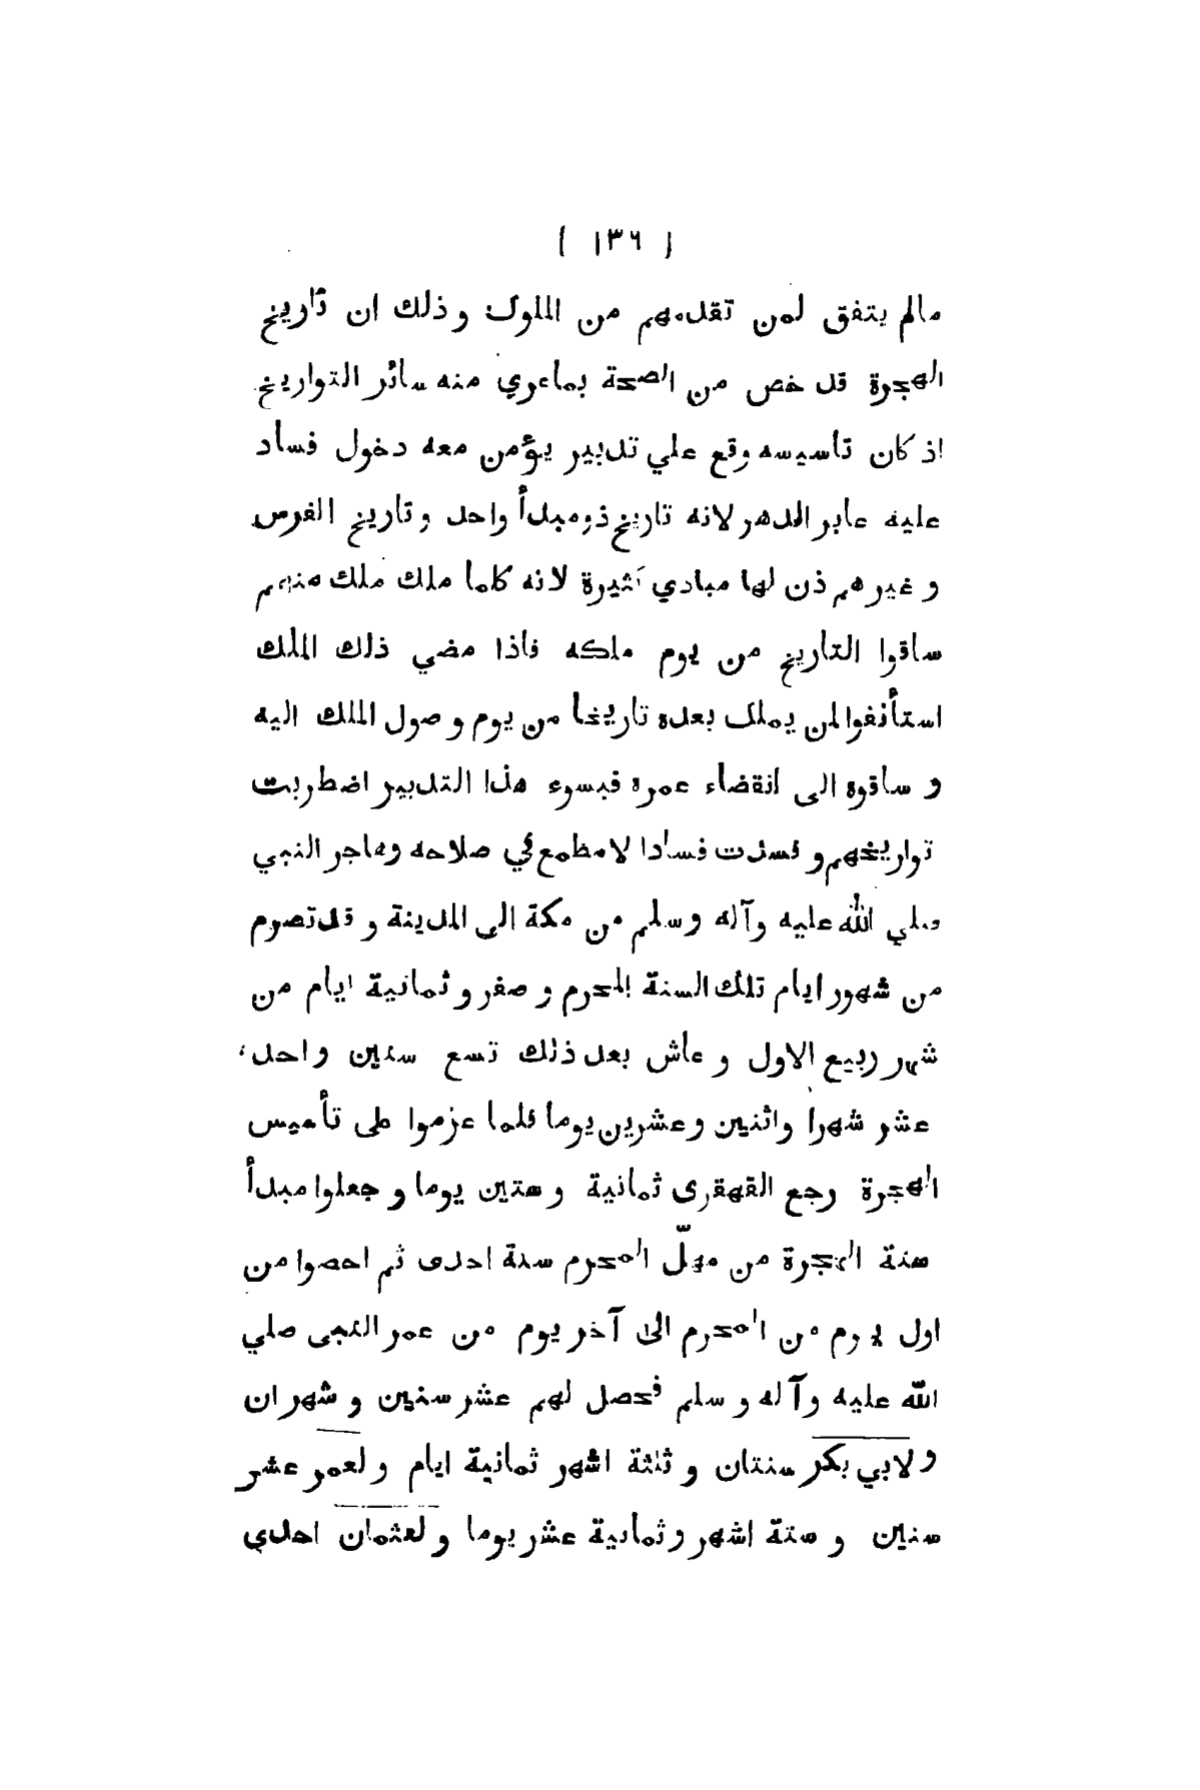 ( ١٣٦ )
مالم يتفق لمن تقدمهم من الملوك وذلك ان تاريخ
الهجرة قد خص من الصحة بماعري منه سائر التواريخ
اذ كان تأسيسه وقع علي تدبير يؤمن معه دخول فساد
عليه عابر الدهر لانه تاريخ ذومبدأ واحد وتاريخ الفرس
و غيرهم ذن لها مبادي كثيرة لانه كلما ملك ملك منهم
ساقوا التاريخ من يوم ملكه فاذا مضي ذلك الملك
استأنفوالمن يملك بعده تاريخا من يوم وصول الملك اليه
و ساقوه الى انقضاء عمره فبسوء هذا التدبير اضطربت
تواريخهم و فسدت فسادا لامطمع في صلاحه وهاجر النبي
صلي الله عليه وآله وسلم من مكة الى المدينة و قدتصرم
من شهور ايام تلك السنة المحرم و صفر و ثمانية ايام من
شهر ربيع الاول و عاش بعد ذلك تسع سنين و احد
عشر شهرا واثنين وعشرين يوما فلما عزموا على تأسيس
الهجرة رجع القهقرى ثمانية وستين يوما و جعلوا مبدأ
سنة الهجرة من مهلّ المحرم سنة احدى ثم احصوا من
اول يوم من المحرم الى آخر يوم من عمر النبى صلي
الله عليه وآله و سلم فحصل لهم عشر سنين و شهران
ولابي بكر سنتان و ثلثة اشهر ثمانية ايام ولعمر عشر
سنين و ستة اشهر وثمانية عشر يوما ولعثمان احدي